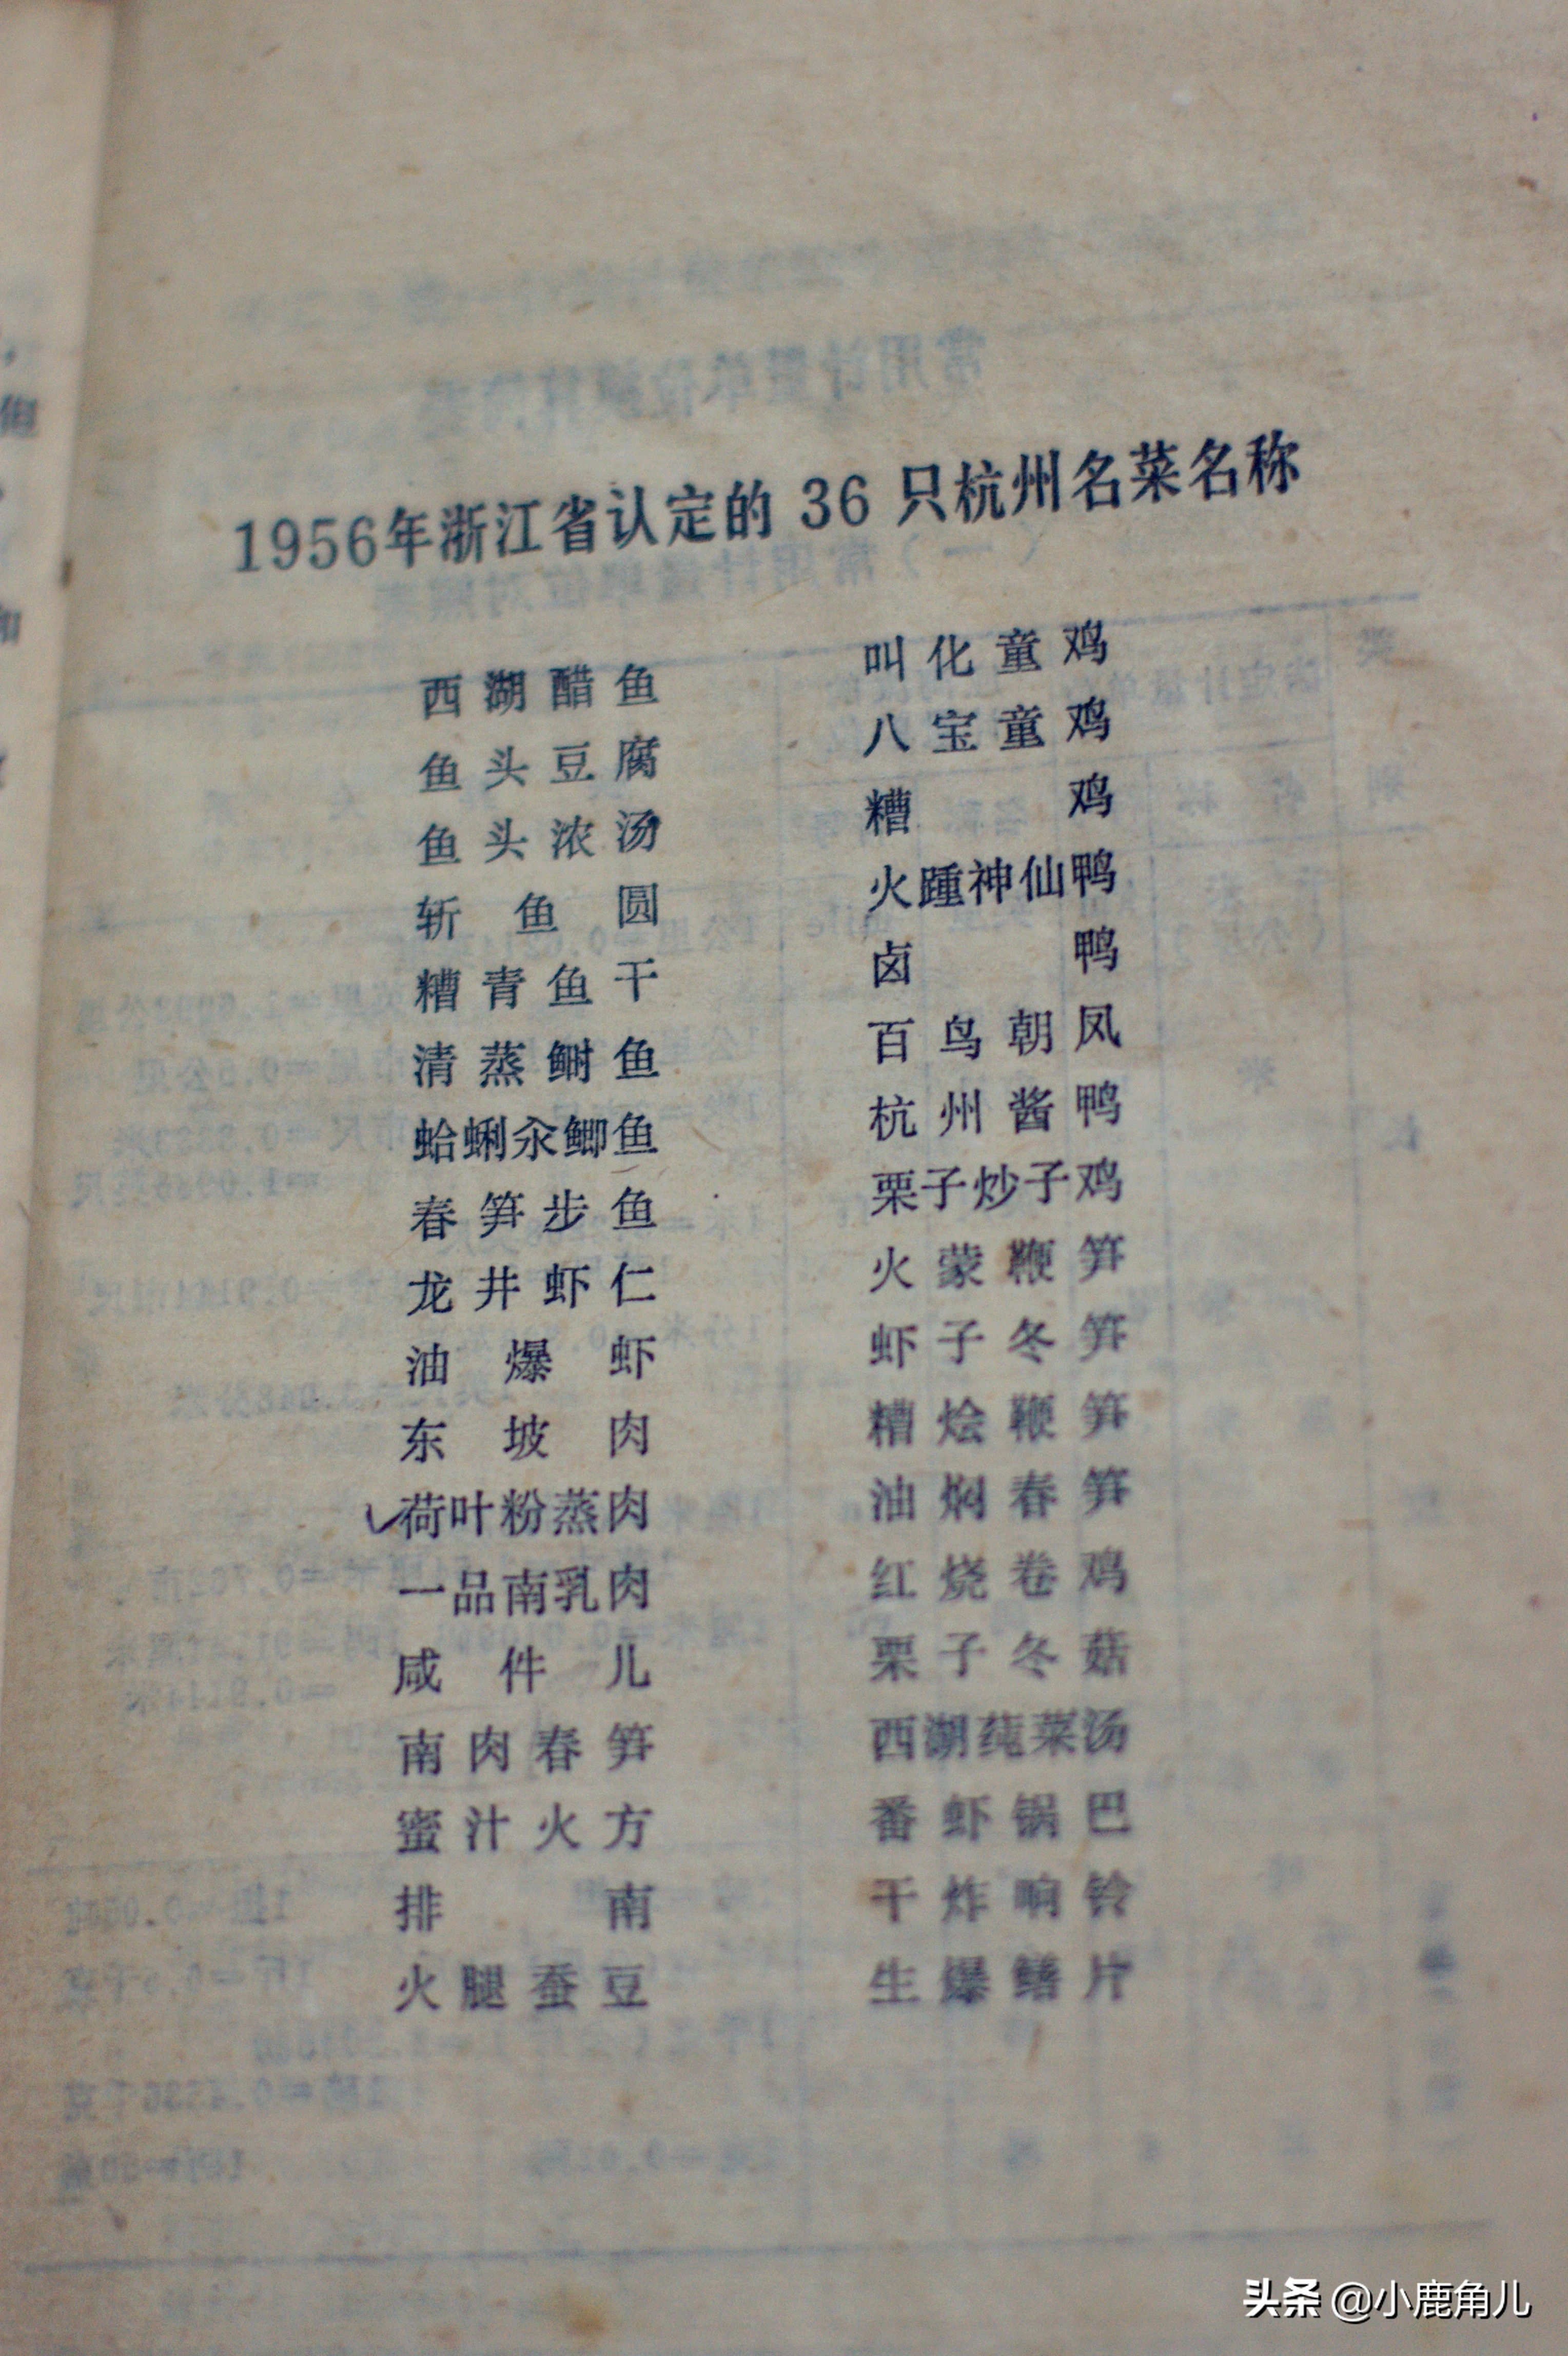 1956年浙江省认定的 36 只杭州名菜名称
西湖醋鱼
鱼头豆腐
鱼头浓汤
斩鱼圆
糟青鱼干
清蒸鲥鱼
蛤蜊汆鲫鱼
春笋步鱼
龙井虾仁
油爆虾
东坡肉
荷叶粉蒸肉
一品南乳肉
咸件儿
南肉春笋
蜜汁火方
排南
火腿蚕豆
叫化童鸡
八宝童鸡
糟鸡
火踵神仙鸭
卤鸭
百鸟朝凤
杭州酱鸭
栗子炒子鸡
火蒙鞭笋
虾子冬笋
糟烩鞭笋
油焖春笋
红烧卷鸡
栗子冬菇
西湖莼菜汤
番虾锅巴
干炸响铃
生爆鳝片
头条 @小鹿角儿